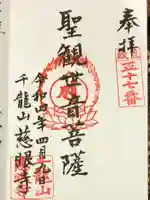 奉拝
五十七番
聖観世音菩薩
令和四年四月九日
千龍山 慈眼寺